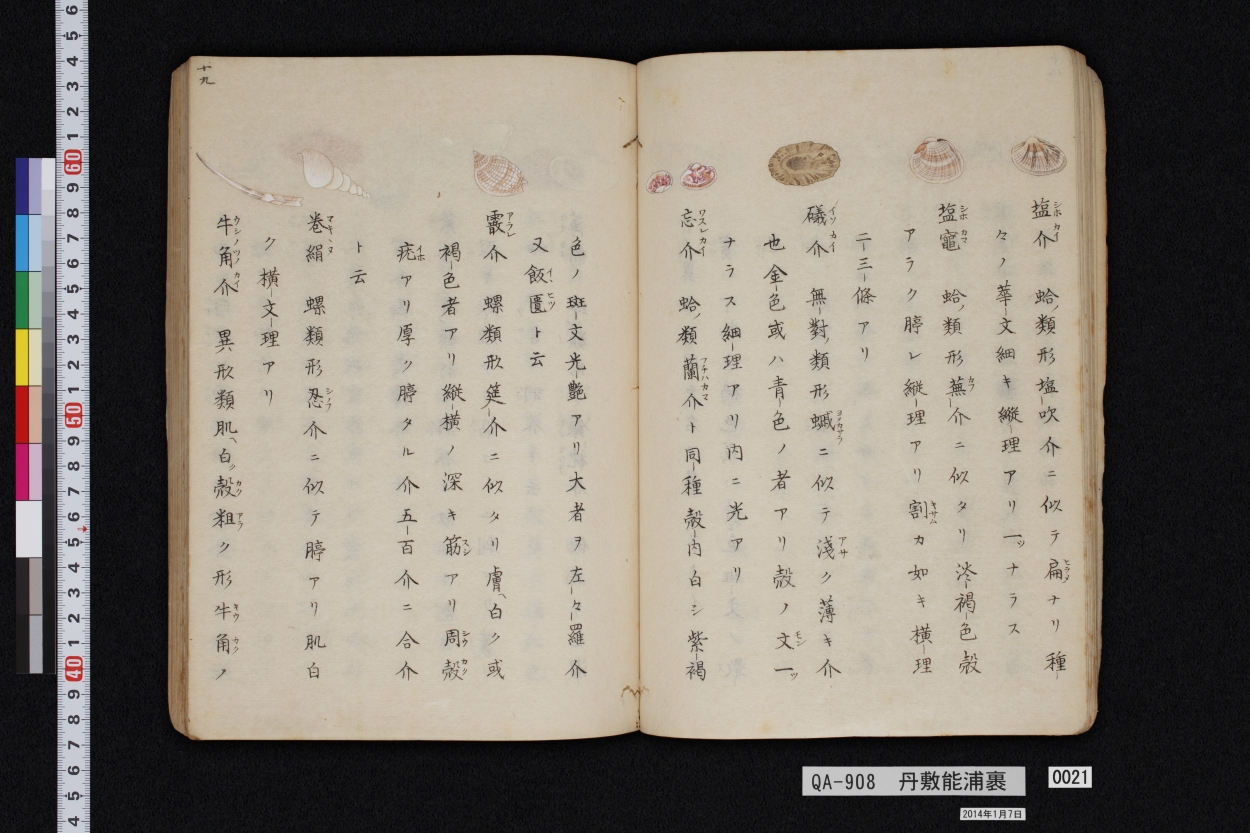 塩介 蛤ノ類形塩吹介ニ似テ扁ナリ種
々ノ華文細キ縱理アリ一ッナラス
塩竈 蛤ノ類形蕪介ニ似タリ淡褐色殻
アラク脝レ縱理アリ割カ如キ横理
二三條アリ
礒介 無對ノ類形蠘ニ似テ淺ク薄キ介
也金色或ハ青色ノ者アリ殻ノ文一ッ
ナラス細理アリ内ニ光アリ
忘介 蛤ノ類蘭介ト同種殻内白シ紫褐
色ノ斑文光艶アリ大者ヲ左々羅介
又飯匱ト云
霰介 螺類形筵介ニ似タリ膚白ク或
褐色者アリ縱横ノ深キ筋アリ周殻
疣アリ厚ク脝タル介五百介ニ合介
ト云
卷絹 螺類形忍介ニ似テ脝アリ肌白
ク横文理アリ
牛角介 異形類肌白殻粗ク形牛角ノ
十九
QA-908 丹敷能浦裹
0021
2014年1月7日